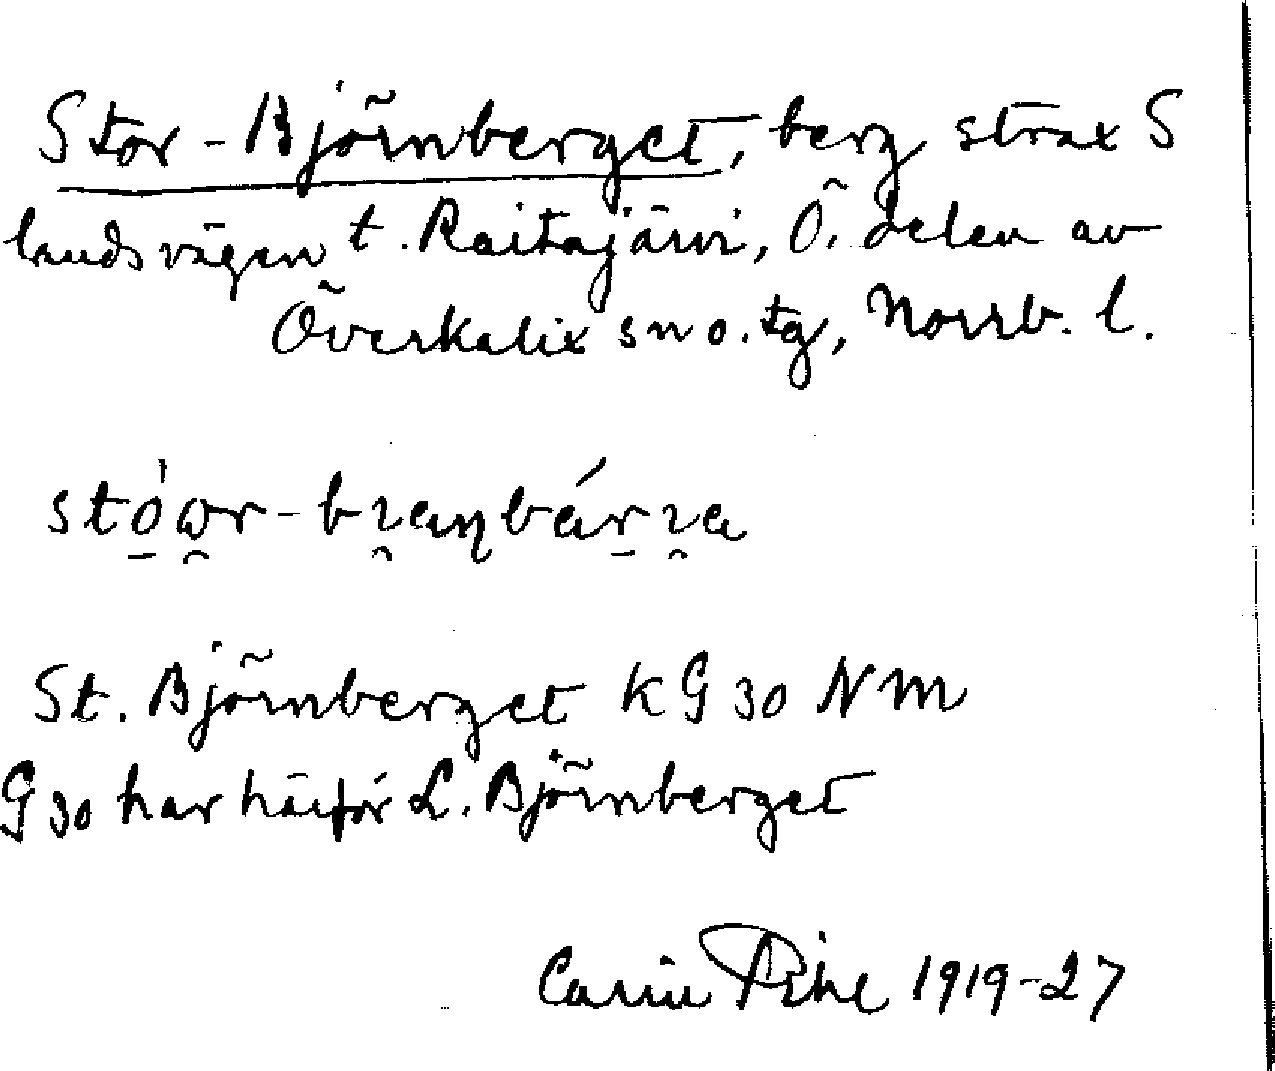 Stor-Björnberget, berg strax S
landsvägen t. Raitajärvi, Ö. delen av
Överkalix sn o. tg, Norrb. l.
St. Björnberget KG 30 NM
G 30 har härför L. Björnberget
Carin Pihl 1919-27